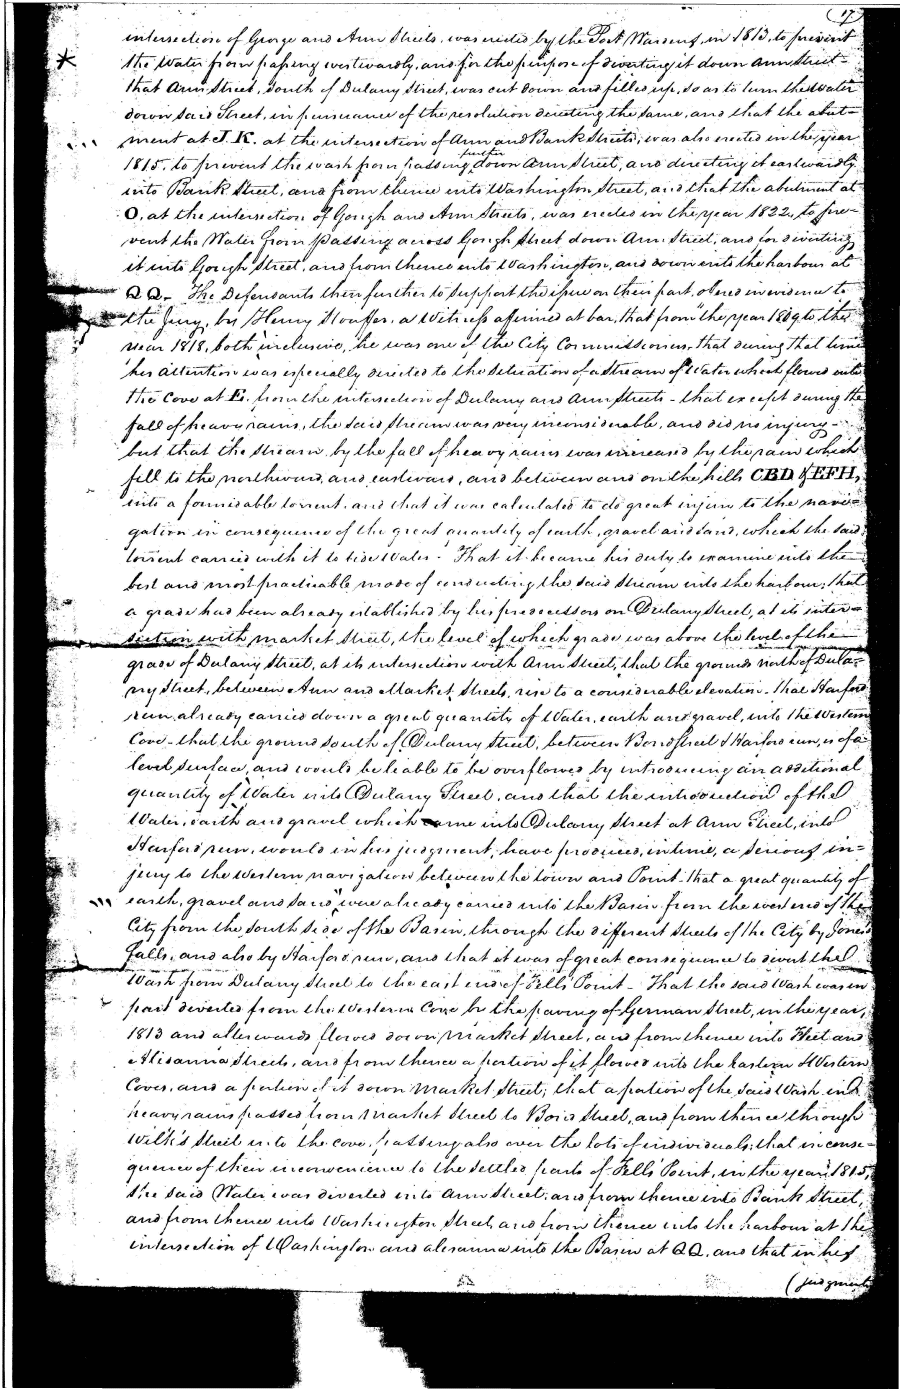 17
intersection of George and Ann Streets, was erected by the Port Wardens, in 1813, to prevent
the Water from passing westwardly, and for the purpose of diverting it down Ann Street-
that Ann Street, South of Dulany Street, was cut down and filled up, so as to turn the Water
down said Street, in pursuance of the resolution directing the same, and that the abut=
ment at J.K. at the intersection of Ann and Bank Streets, was also erected in the year
1815, to prevent the wash from passing further down Ann Street, and directing it eastwardly
into Bank Street, and from thence into Washington Street, and that the abutment at
O, at the intersection of Gough and Ann Streets, was erected in the year 1822, to pre-
vent the Water from passing across Gough Street down Ann Street, and for diverting
it into Gough Street, and from thence into Washington, and down into the harbour at
QQ. The Defendants then further to support the issue on their part, offered in evidence to
the Jury, by Henry Stouffer, a Witness affirmed at bar, that from the year 1809 to the
year 1818, both inclusive, he was one of the City Commissioners, that during that time
his attention was especially directed to the situation of a stream of Water which flowed into
the Cove at E. from the intersection of Dulany and Ann Streets - that except during the
fall of heavy rains, the said Stream was very inconsiderable, and did no injury-
but that the stream by the fall of heavy rains was increased by the rain which
fell to the northward, and eastward, and between and on the hills CBD & EFH,
into a formidable torrent, and that it was calculated to do great injury to the navi=
gation in consequence of the great quantity of earth, gravel and sand, which the said
torrent carried with it to tide Water - That it became his duty to examine into the
best and most practicable mode of conducting the said Stream into the harbour; that
a grade had been already established by his predecessors on Dulany Street, at its inter=
section with market Street, the level of which grade was above the level of the
grade of Dulany Street, at its intersection with Ann Street, that the grounds north of Dula=
ny Street, between Ann and Market Streets, rise to a considerable elevation - that Harford
run, already carried down a great quantity of Water, earth and gravel, into the Western
Cove - that the ground south of Dulany Street, between Bond Street & Harford run, is of a
level surface, and would be liable to be overflowed by introducing an additional
quantity of Water into Dulany Street, and that the introduction of the
Water, earth and gravel which came into Dulany Street at Ann Street, into
Harford run, would in his judgment, have produced, in time, a serious in=
jury to the western navigation between the town and Point - that a great quantity of
earth, gravel and sand were already carried into the Basin from the west end of the
City from the South side of the Basin, through the different streets of the City by Jones's
falls, and also by Harford run, and that it was of great consequence to divert the
Wash from Dulany Street to the east end of Fells Point - That the said Wash was in
part diverted from the Western Cove by the paving of German Street, in the year,
1813 and afterwards flowed down Market Street, and from thence into Fleet and
Alisanna Streets, and from thence a portion of it flowed into the Eastern & Western
Coves, and a portion of it down Market Street; that a portion of the said Wash in
heavy rains passed from Market Street to Bond Street, and from thence through
Wilk's Street into the cove, passing also over the lots of individuals; that in conse=
quence of their inconvenience to the settled parts of Fells Point, in the year 1815,
the said Water was diverted into Ann Street, and from thence into Bank Street,
and from thence into Washington Street, and from thence into the harbour at the
intersection of Washington and alisanna into the Basin at QQ. and that in his
(judgment